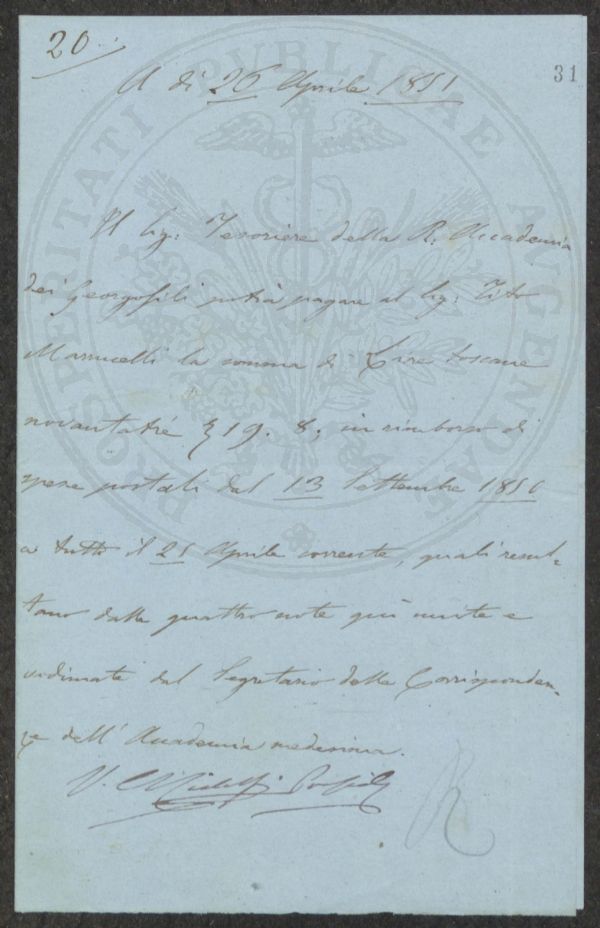 20.
31
A dì 26 Aprile 1851
Il Sig: Tesoriere della R. Accademia
dei Georgofili potrà pagare al Sig: Tito
Marrucelli la somma di Lire toscane
novantatré 19. 8, in rimborso di
spese postali dal 13 Settembre 1850
a tutto il 25 Aprile corrente, quali resul-
tano dalle quattro note qui unite e
vidimate dal Segretario delle Corrisponden-
ze dell' Accademia medesima.
V.
R
PROSPERITATI PUBLICAE AUGENDAE